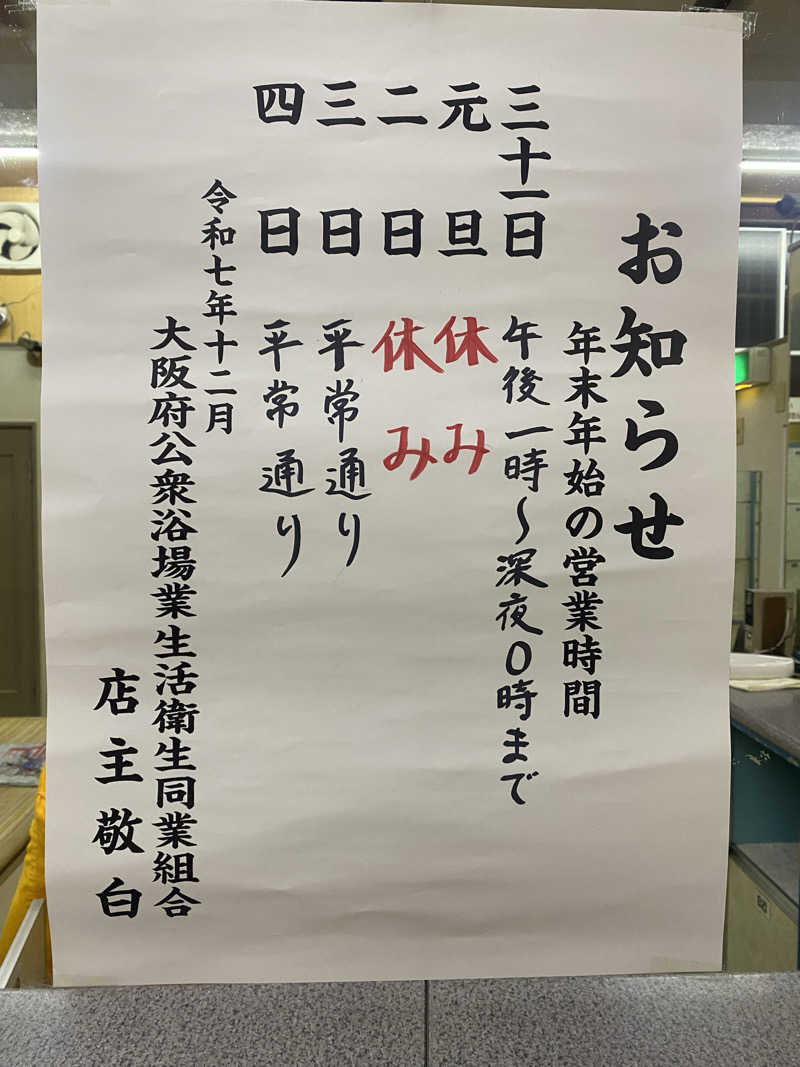 お知らせ
年末年始の営業時間
三十一日 午後一時～深夜0時まで
元旦 休み
二日 休み
三日 平常通り
四日 平常通り
令和七年十二月
大阪府公衆浴場業生活衛生同業組合
店主敬白